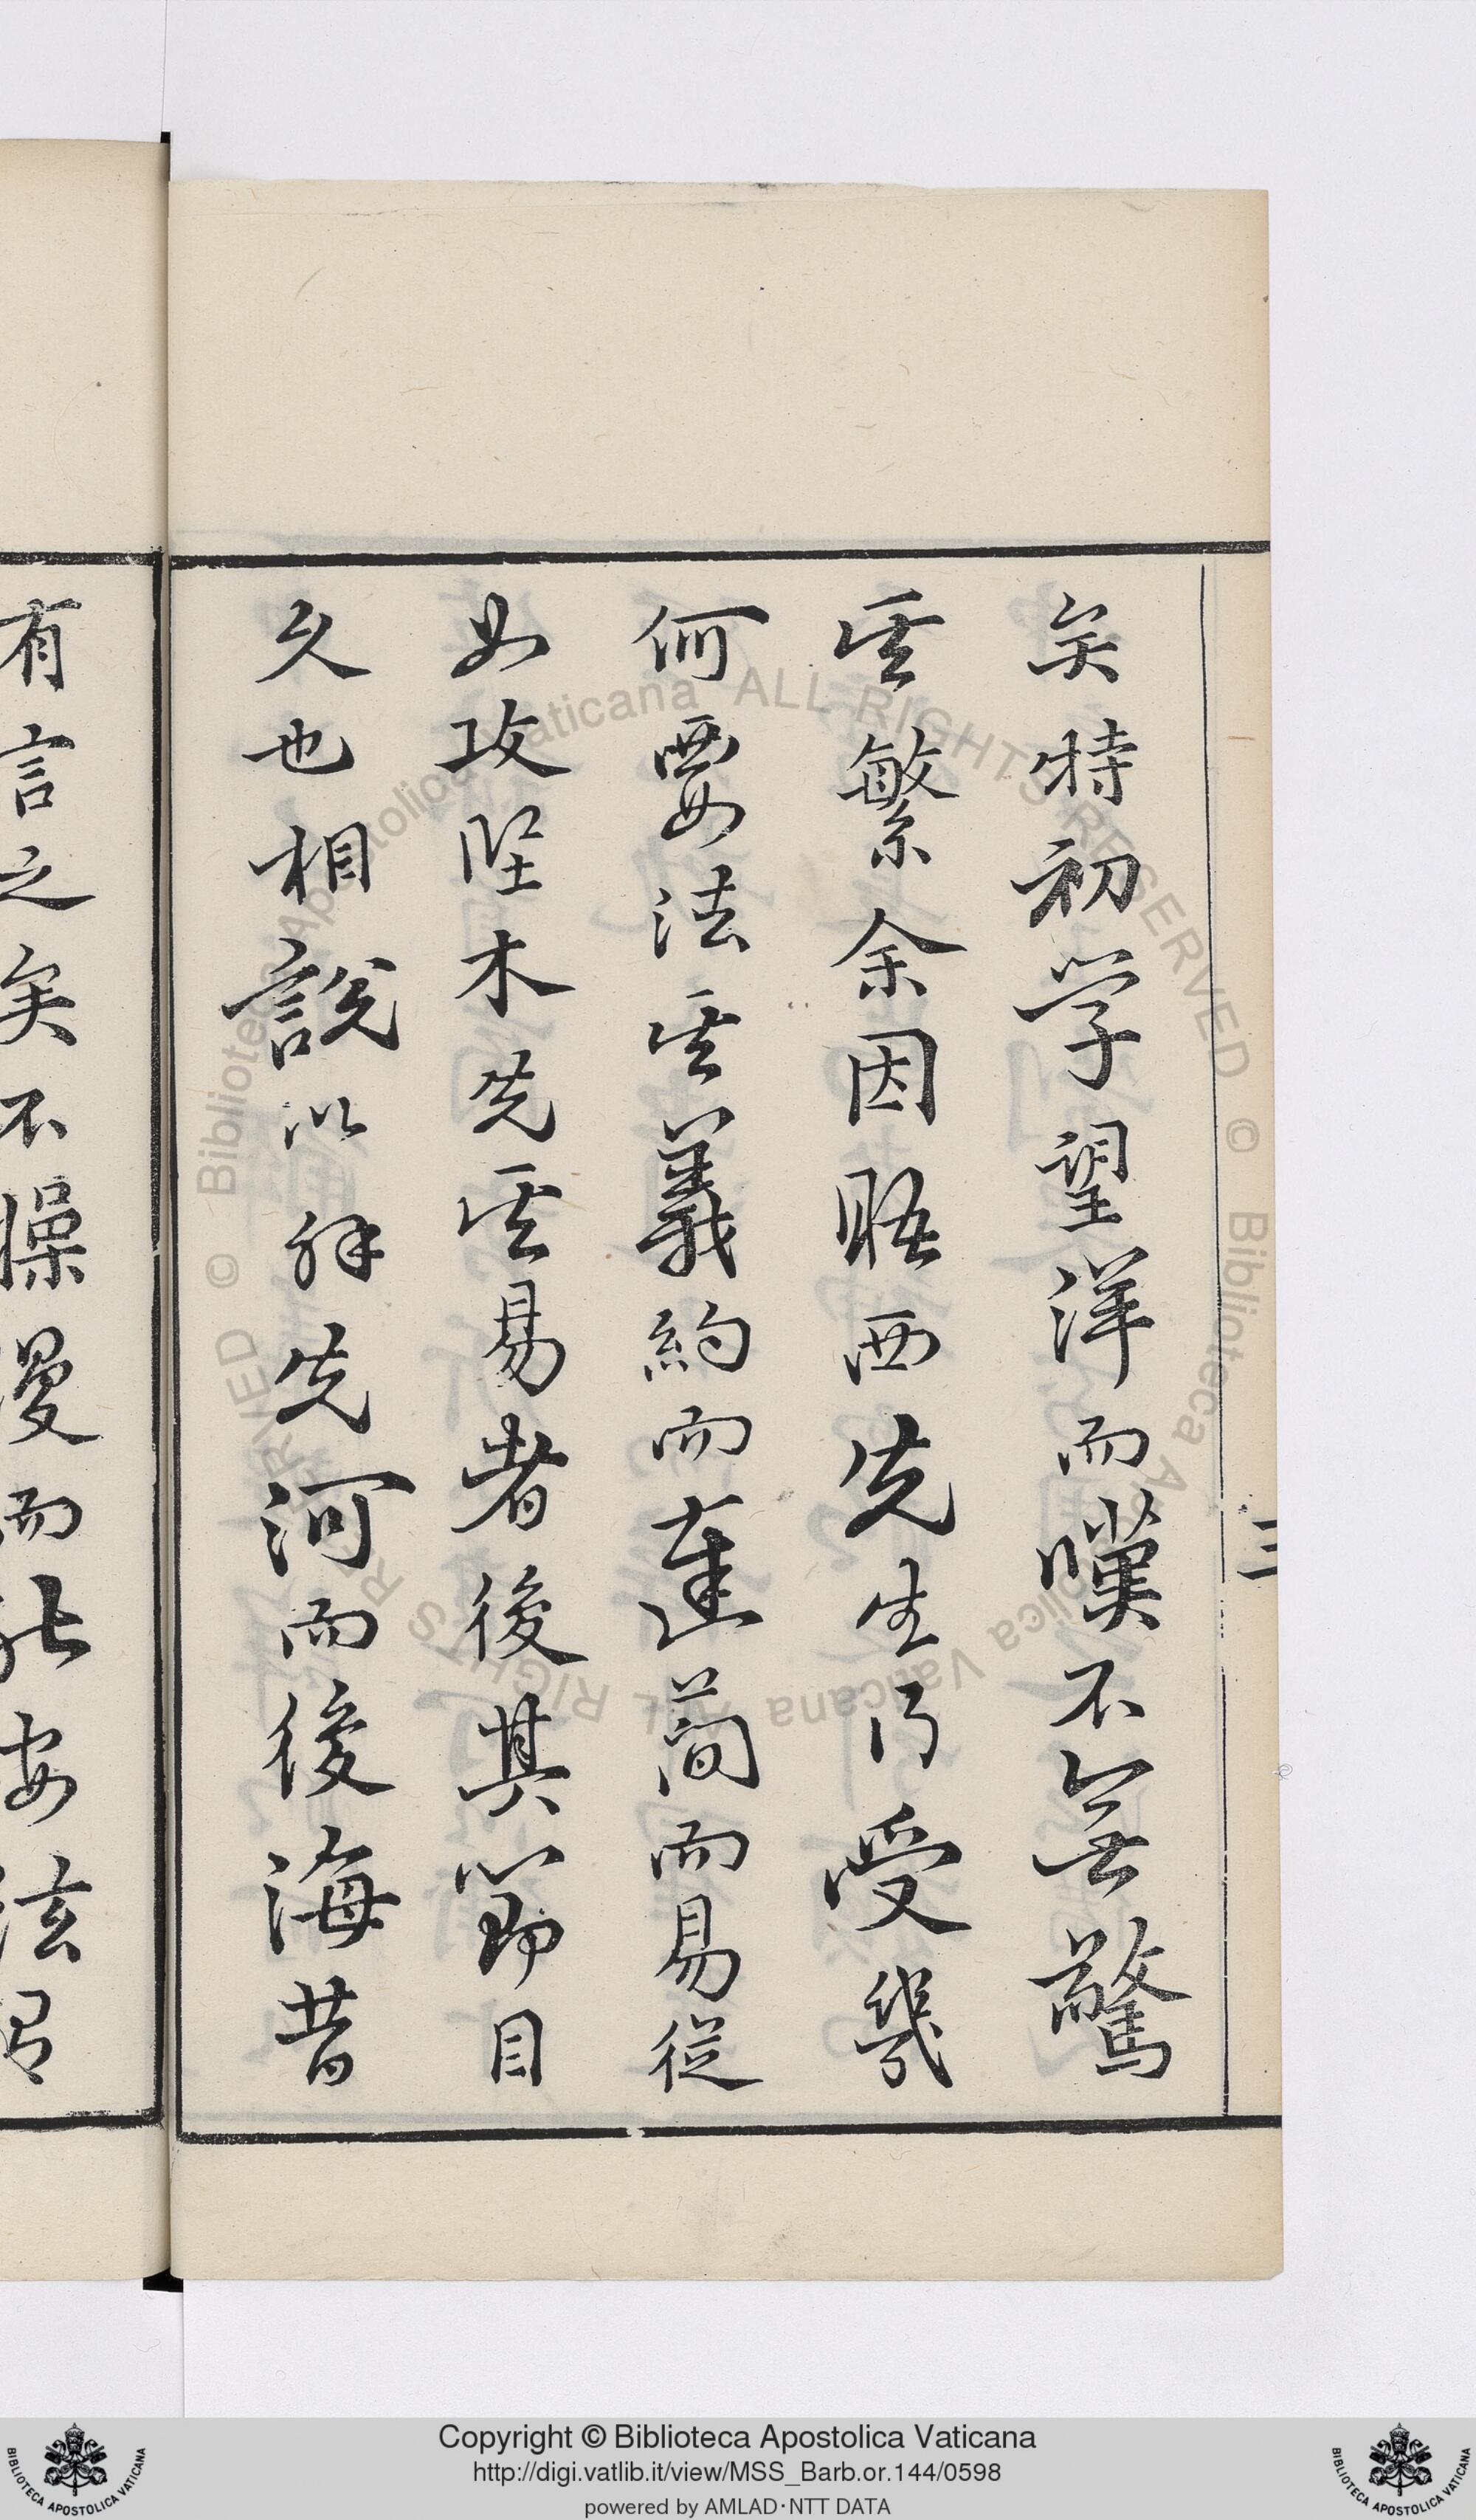 三
矣特初学望洋而嘆不無驚
其繁余因晤西先生乃受幾
何要法其義約而達簡而易從
如攻堅木先其易者後其節目
久也相說以解先河而後海昔
有言之矣不操漫而能安弦
Copyright © Biblioteca Apostolica Vaticana
http://digi.vatlib.it/view/MSS_Barb.or.144/0598
powered by AMLAD·NTT DATA
BIBLIOTECA APOSTOLICA VATICANA
BIBLIOTECA APOSTOLICA VATICANA
© Biblioteca Apostolica Vaticana ALL RIGHTS RESERVED
© Biblioteca Apostolica Vaticana ALL RIGHTS RESERVED